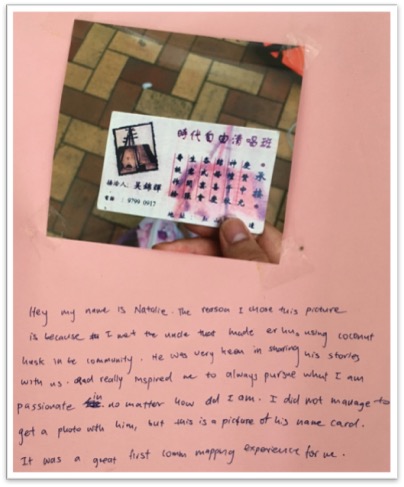 時代自由清唱班
承接
接洽人：吳錦輝
電話：9799 0917
地址：
Hey my name is Natalie. The reason I chose this picture
is because I met the uncle that made er hu, using coconut
husk in te community. He was very keen in sharing his stories
with us. and really inspired me to always pursue what I am
passionate in. no matter how old I am. I did not manage to
get a photo with him, but this is a picture of his name card.
It was a great first comm mapping experience for me.